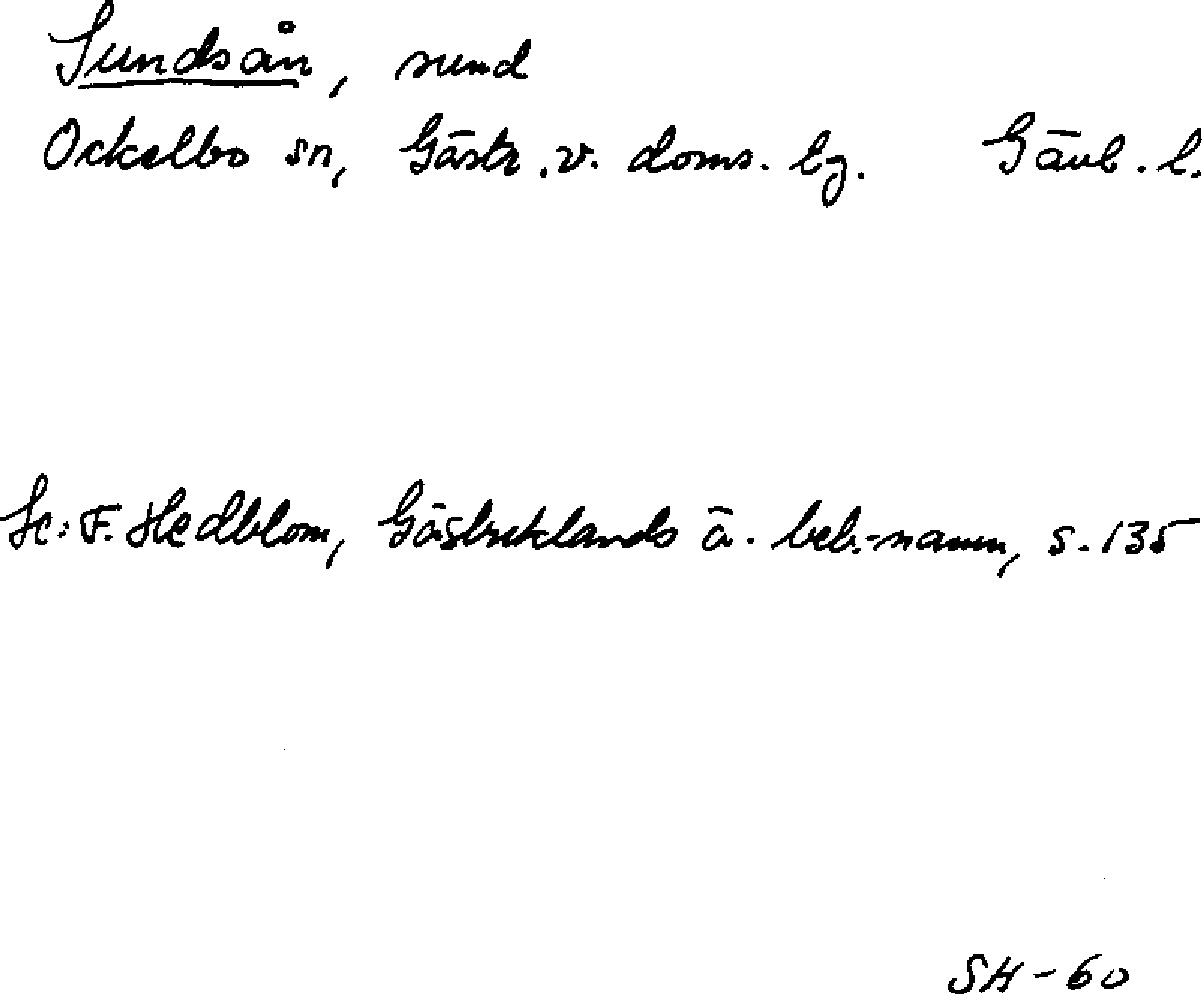 Sundsån, sund
Ockelbo sn, Gästr. v. doms. bg. Gävl. l.
Se: F. Hedblom, Gästriklands ä. beb.-namn, s. 135
SH-60